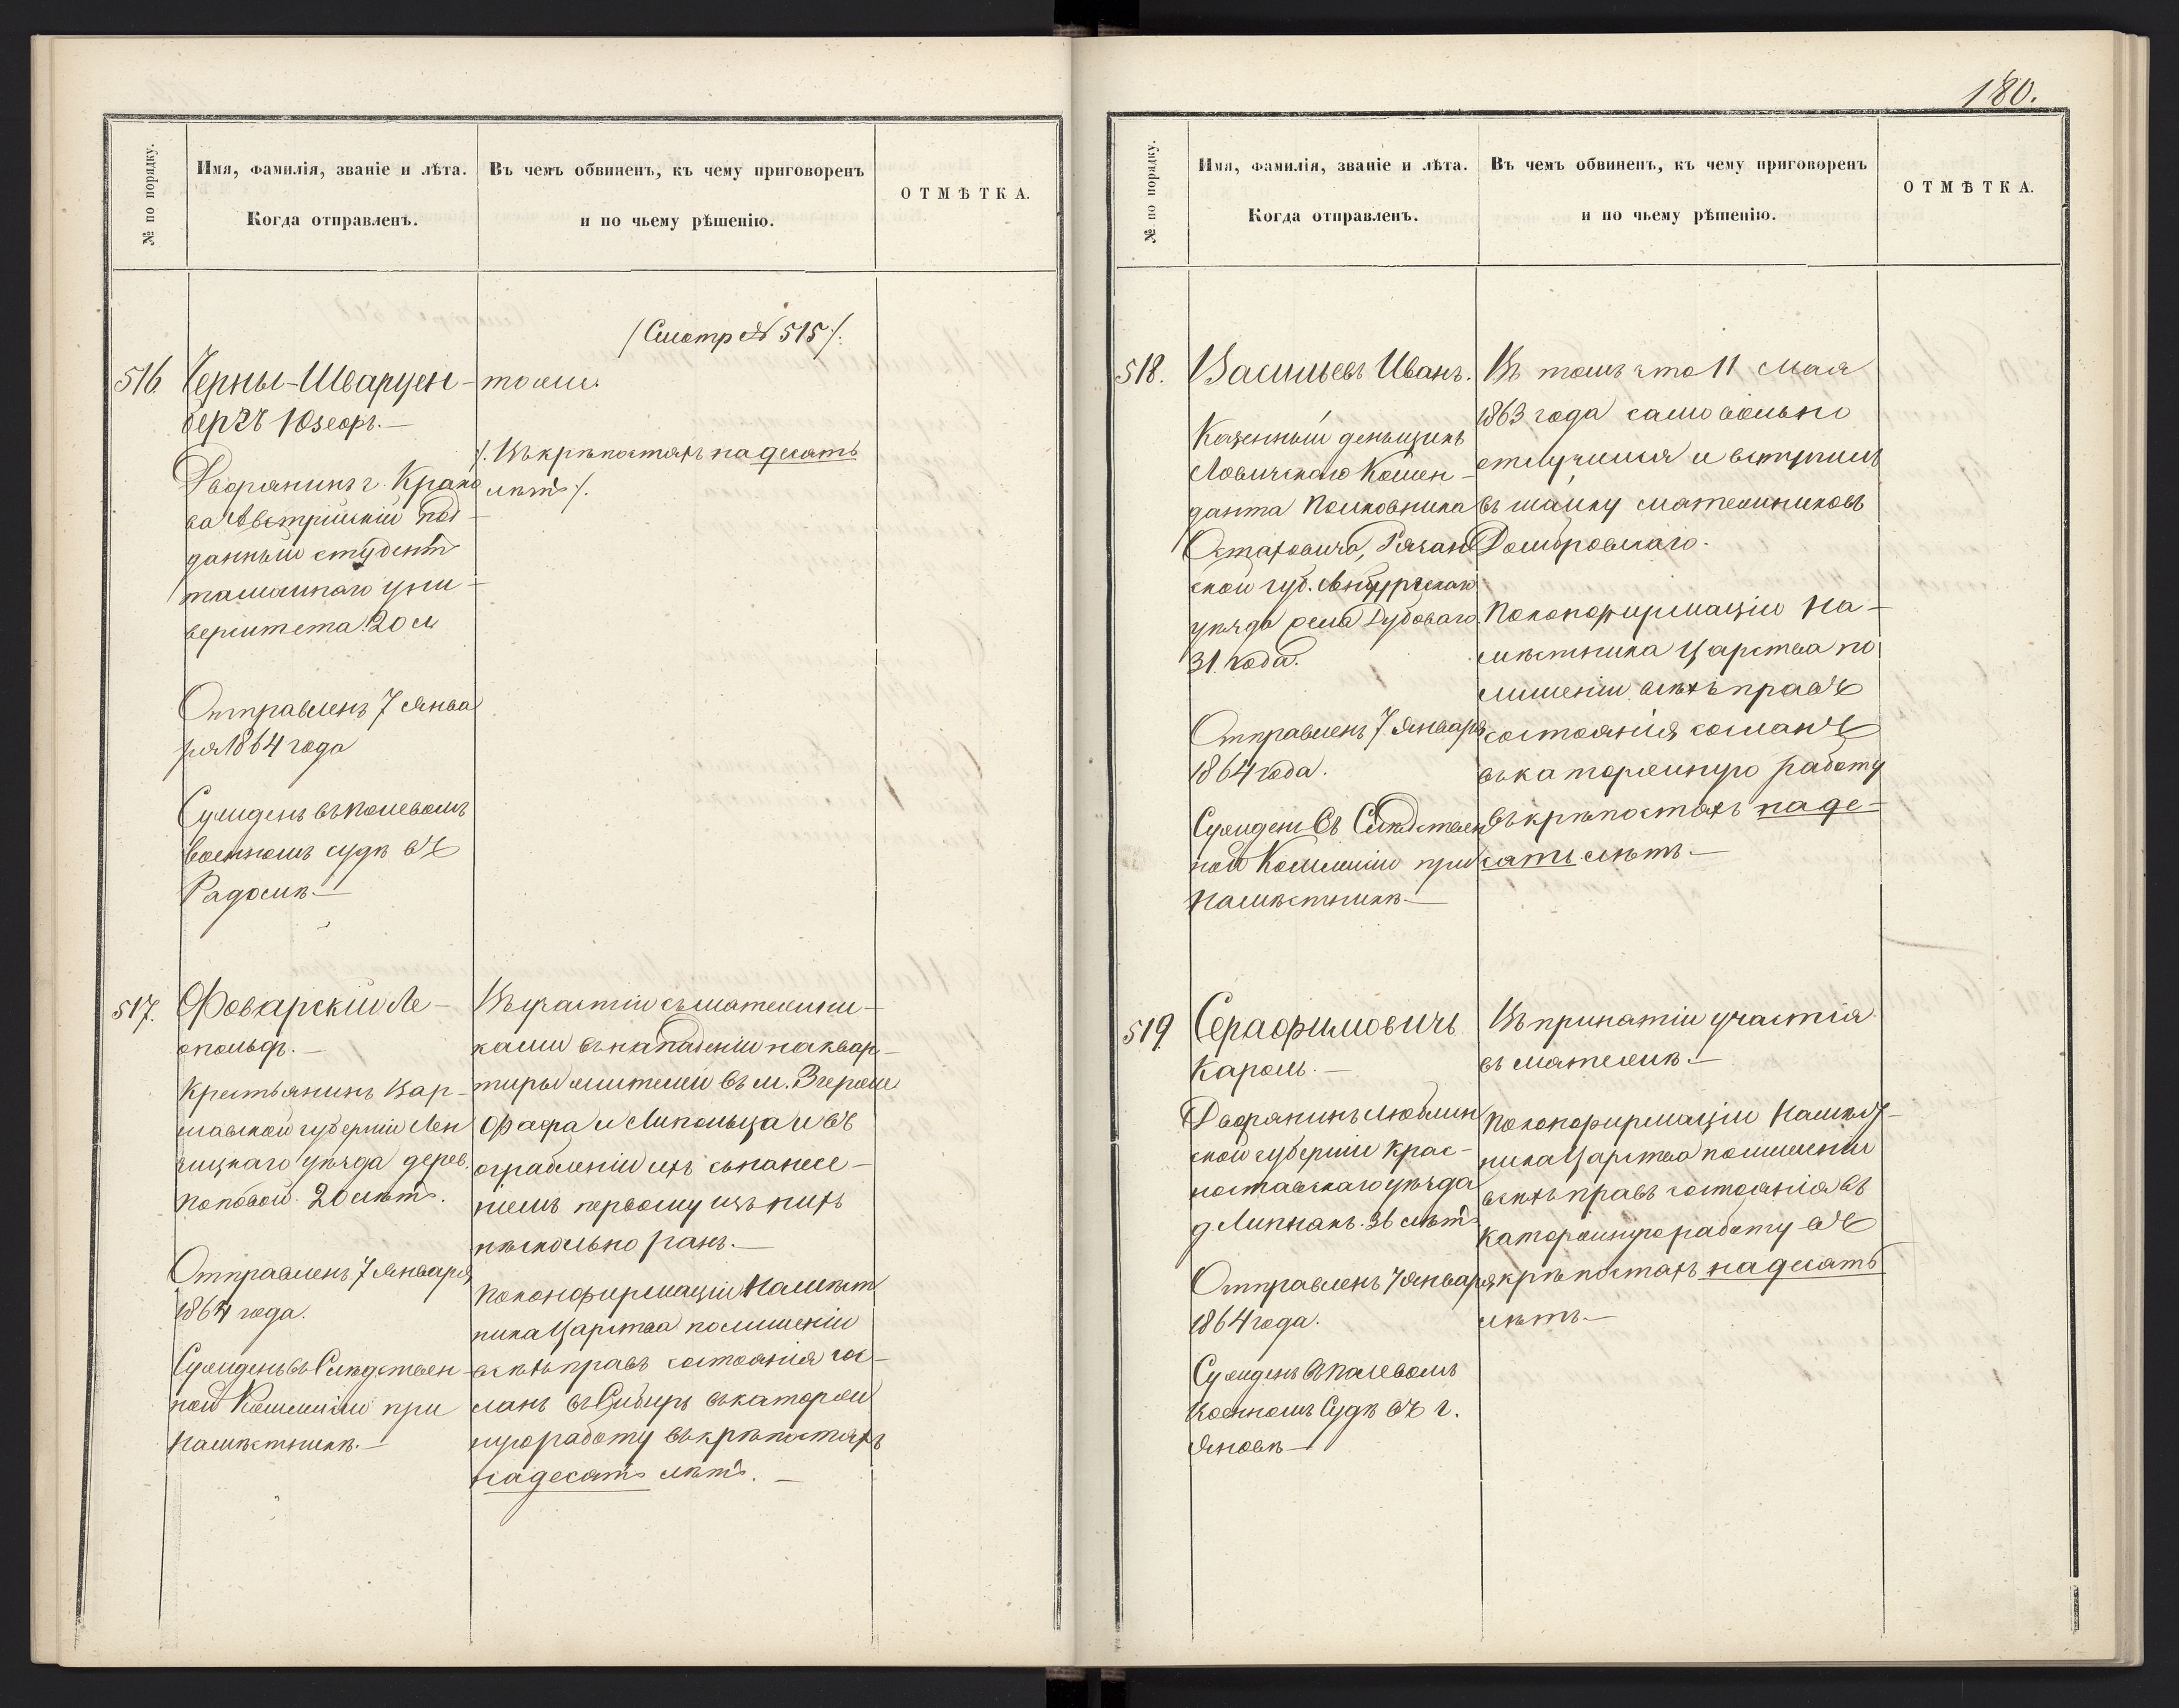 180.
№ по порядку.
Имя, фамилія, званіе и лѣта.
Когда отправленъ.
Въ чемъ обвиненъ, къ чему приговоренъ
и по чьему рѣшенію.
ОТМѢТКА.
/Смотр № 515/:
516.
Черны-Шварцен-
бергъ Юзефъ.—
Дворянинъ г. Крако
ва Австрійскій под-
данный студентъ
тамошнаго уни-
верситета. 20 л
Отправленъ 7 Янва
ря 1864 года
Сужденъ въ полевомъ
военномъ судѣ въ
Радомѣ.—
тоже.
/. Въ крѣпостяхъ на десять
лѣтъ/.
517.
Фоварскій Ле-
опольдъ.—
Крестьянинъ Вар-
шавской губерніи Лен
чицкаго уѣзда дерев.
Поповой. 20 лѣтъ.
Отправленъ 7 Января
1864 года.
Сужденъ въ Слѣдствен-
ной Коммисіи при
Намѣстникѣ.—
Въ участіи съ мятежни-
ками въ нападеніи на квар-
тиры жителей въ м. Згерже
Фафа и Липольца и въ
ограбленіи ихъ съ нанесе-
ніемъ первому изъ нихъ
нѣсколько ранъ.—
По конфирмаціи Намѣст
ника Царства по лишеніи
всѣхъ правъ состоянія сос-
ланъ въ Сибирь въ каторж
ную работу въ крѣпостяхъ
на десять лѣтъ.—
№ по порядку.
Имя, фамилія, званіе и лѣта.
Когда отправленъ.
Въ чемъ обвиненъ, къ чему приговоренъ
и по чьему рѣшенію.
ОТМѢТКА.
518.
Васильевъ Иванъ.
Казенный деньщикъ
Ловичскаго Комен-
данта Полковника
Остаховича, Рязан
ской губ. уѣзда села Дубоваго.
31. года.
Отправленъ 7 Января
1864 года.
Сужденъ въ Слѣдствен
ной Коммисіи при
Намѣстникѣ.—
Въ томъ что 11 Мая
1863 года самовольно
отлучился и вступилъ
въ шайку мятежниковъ
Домбровскаго.
По конфирмаціи На-
мѣстника Царства по
лишеніи всѣхъ правъ
состоянія сосланъ
въ каторжную работу
въ крѣпостяхъ на де-
сять лѣтъ.—
519.
Серафимовичъ
Кароль.—
Дворянинъ Люблин
ской губерніи Крас-
ноставскаго уѣзда
д. Липнакъ. 36 лѣтъ
Отправленъ 7 Января
1864 года.
Сужденъ въ Полевомъ
Военномъ Судѣ въ г.
Яновѣ—
Въ принятіи участія
въ мятежѣ.—
По конфирмаціи Намѣст
ника Царства по лишеніи
всѣхъ правъ состоянія въ
каторжную работу въ
крѣпостяхъ на десять
лѣтъ.—